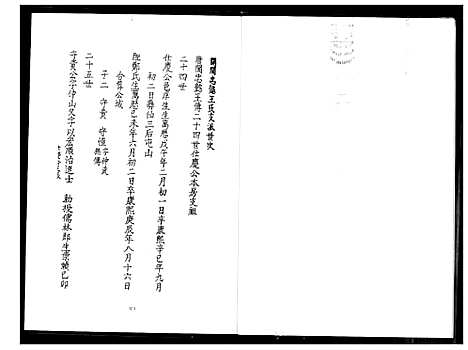 開閩忠懿王長支派世次
唐閩忠懿王傳二十四世仕慶公本房支組
二十四世
仕慶公邑庠生生萬歷戊午年二月初一日卒康熙辛巳年九月
初二日葬伯三后屯山
配鄭氏生萬歷己未年六月初二日卒康熙庚辰年八月十六日
合葬公域
子二 守貢 守恒字仲爰
二十五世
守貢公字仲山又字以宏廩治進士 勅授儒林郎生崇禎己卯